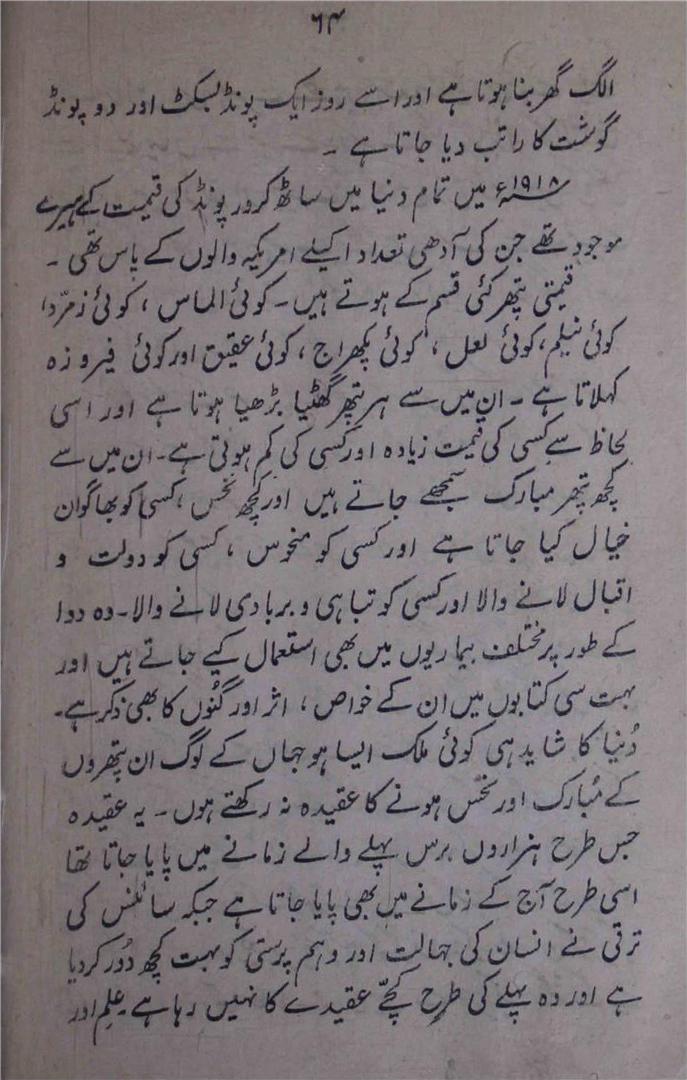 ۶۴
الگ گھر بنا ہوتا ہے اور اسے روز ایک پونڈ بسکٹ اور دو پونڈ
گوشت کا راتب دیا جاتا ہے ۔
۱۹۱۸ء میں تمام دنیا میں ساٹھ کرور پونڈ کی قیمت کے ہیرے
موجود تھے جن کی آدھی تعداد اکیلے امریکہ والوں کے پاس تھی ۔
قیمتی پتھر کئی قسم کے ہوتے ہیں ۔ کوئی الماس ، کوئی زمرّد ا
کوئی نیلم ، کوئی لعل ، کوئی پکھراج ، کوئی عقیق اور کوئی فیروزہ
کہلاتا ہے ۔ ان میں سے ہر پتھر گھٹیا بڑھیا ہوتا ہے اور اسی
لحاظ سے کسی کی قیمت زیادہ اور کسی کی کم ہوتی ہے ۔ ان میں سے
کچھ پتھر مبارک سمجھے جاتے ہیں اور کچھ نحس ، کسی کو بھاگوان
خیال کیا جاتا ہے اور کسی کو منحوس ، کسی کو دولت و
اقبال لانے والا اور کسی کو تباہی و بربادی لانے والا ۔ وہ دوا
کے طور پر مختلف بیماریوں میں بھی استعمال کیے جاتے ہیں اور
بہت سی کتابوں میں ان کے خواص ، اثر اور گنُوں کا بھی ذکر ہے ۔
دُنیا کا شاید ہی کوئی ملک ایسا ہو جہاں کے لوگ ان پتھروں
کے مُبارک اور نحس ہونے کا عقیدہ نہ رکھتے ہوں ۔ یہ عقیدہ
جس طرح ہزاروں برس پہلے والے زمانے میں پایا جاتا تھا
اسی طرح آج کے زمانے میں بھی پایا جاتا ہے جبکہ سائنس کی
ترقی نے انسان کی جہالت اور وہم پرستی کو بہت کچھ دُور کر دیا
ہے اور وہ پہلے کی طرح کچّے عقیدے کا نہیں رہا ہے ۔ علم اور